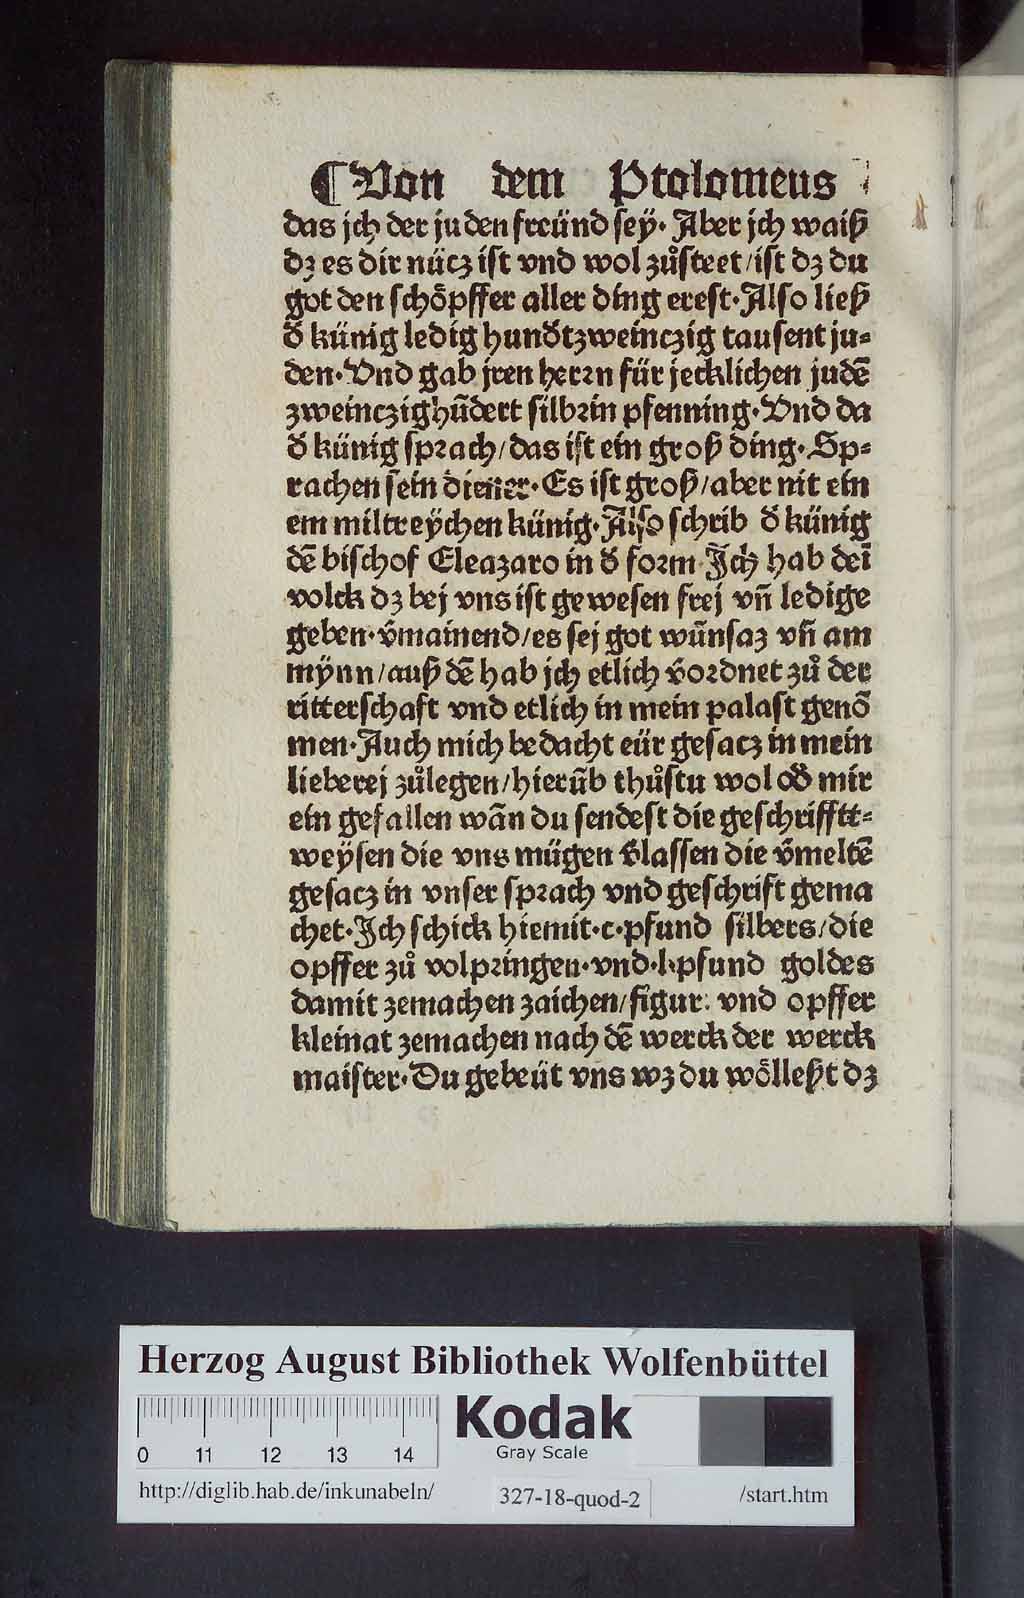 ¶ Von dem Ptolomeus
das jch der juden freünd seÿ· Aber jch waiß
dz es dir nücz ist vnd wol zůsteet/ist dz du
got den schöpffer aller ding erest·Also ließ
d̕ künig ledig hund̕tzweinczig tausent ju⸗
den·Vnd gab jren herrn für jecklichen judē
zweinczighūdert silbrin pfenning·Vnd da
d̕ künig sprach/das ist ein groß ding·Sp⸗
rachen sein diener·Es ist groß/aber nit ein
em miltreÿchen künig·Also schrib d̕ künig
dē bischof Eleazaro in d̕ form Jch hab dei
volck dz bej vns ist gewesen frej vn̄ ledige
geben·v̄mainend/es sej got wūnsaz vn̄ am
mÿnn/auß dē hab jch etlich v̄ordnet zů der
ritterschaft vnd etlich in mein palast genō
men·Auch mich bedacht eür gesacz in mein
lieberej zůlegen/hierūb thůstu wol od̕ mir
ein gefallen wān du sendest die geschrifftt⸗
weÿsen die vns mügen v̄lassen die v̄meltē
gesacz in vnser sprach vnd geschrift gema
chet·Jch schick hiemit·c·pfund silbers/die
opffer zů volpringen·vnd·l·pfund goldes
damit zemachen zaichen/figur: vnd opffer
kleinat zemachen nach dē werck der werck
maister·Du gebeüt vns wz du wölleßt dz
Herzog August Bibliothek Wolfenbüttel
0 11 12 13 14
Kodak
Gray Scale
http://diglib.hab.de/inkunabeln/ 327-18-quod-2 /start.htm